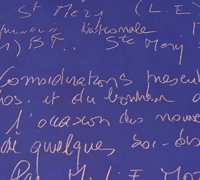 St Méry (L. E)
Nationale
1) BF.. Ste Mery
Considérations présent
os. et du bonheur d
l'occasion des nouve
de quelques soi-dis
Par M. L. E. Mo